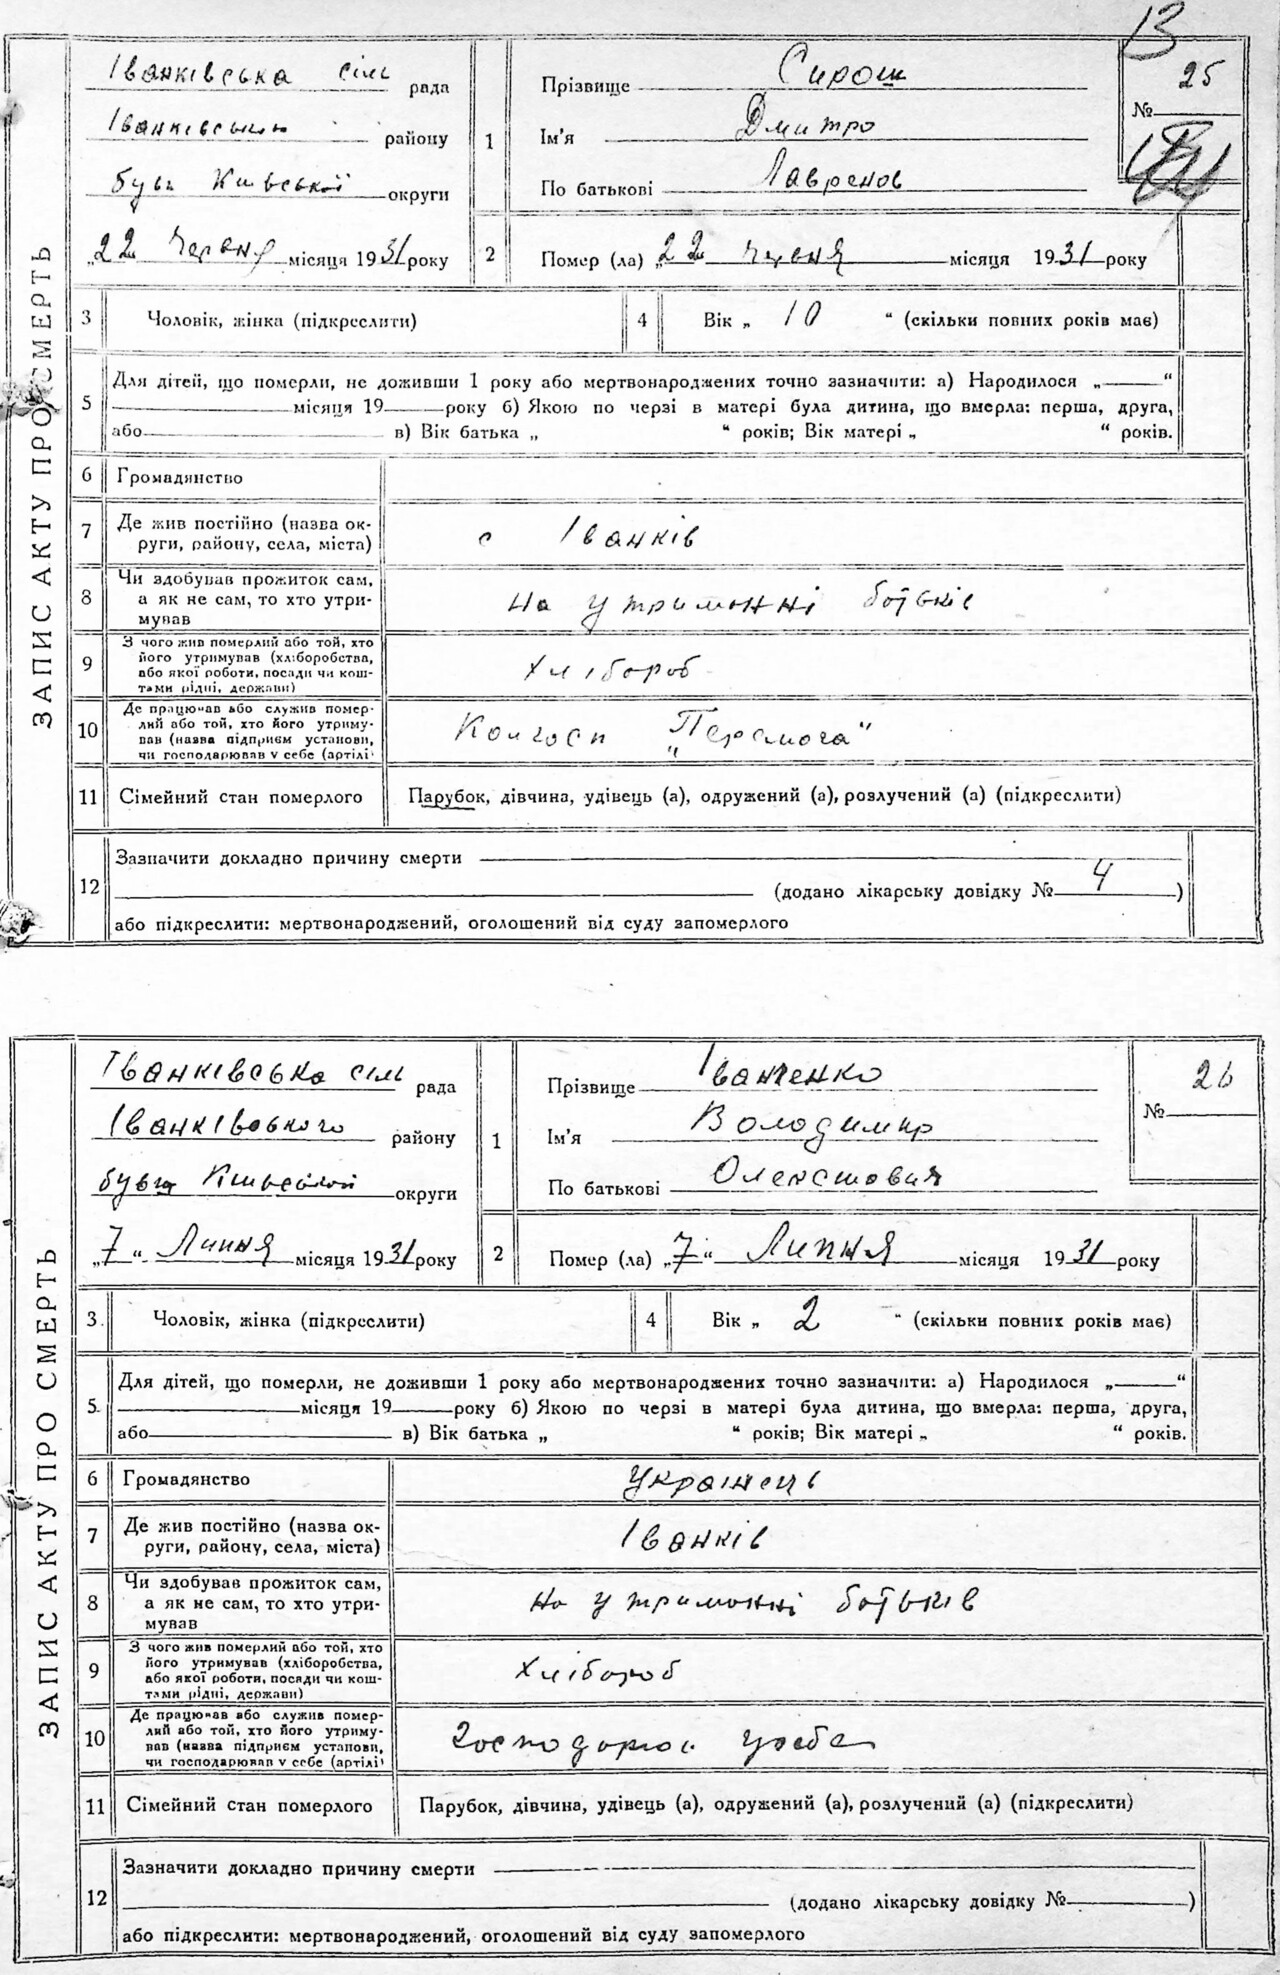 13
Іванківська сіль рада
Іванківського району
бувш Київської округи
„22 Червня місяця 1931 року
1
Прізвище Сирош
Ім'я Дмитро
По батькові Лавренов
25
№
2
Помер (ла) „22 червня місяця 1931 року
ЗАПИС АКТУ ПРО СМЕРТЬ
3 Чоловік, жінка (підкреслити) 4 Вік „ 10 “ (скільки повних років має)
5 Для дітей, що померли, не доживши 1 року або мертвонароджених точно зазначити: а) Народилося „ “
місяця 19 року б) Якою по черзі в матері була дитина, що вмерла: перша, друга,
або в) Вік батька „ “ років; Вік матері „ “ років.
6 Громадянство
7 Де жив постійно (назва ок-
руги, району, села, міста)
с Іванків
8 Чи здобував прожиток сам,
а як не сам, то хто утри-
мував
На утриманні батьків
9 З чого жив померлий або той, хто
його утримував (хліборобства,
або якої роботи, посади чи кош-
тами рідні, держави)
Хлібороб
10 Де працював або служив помер-
лий або той, хто його утриму-
вав (назва підприєм установи,
чи господарював у себе (артілі)
Колгосп „Перемога“
11 Сімейний стан померлого Парубок, дівчина, удівець (а), одружений (а), розлучений (а) (підкреслити)
12 Зазначити докладно причину смерти
(додано лікарську довідку № 4 )
або підкреслити: мертвонароджений, оголошений від суду запомерлого
Іванківська сіль рада
Іванківського району
бувш Київської округи
„7“ Липня місяця 1931 року
1
Прізвище Іванченко
Ім'я Володимир
По батькові
26
№
2
Помер (ла) „7“ Липня місяця 1931 року
ЗАПИС АКТУ ПРО СМЕРТЬ
3. Чоловік, жінка (підкреслити) 4 Вік „ 2 “ (скільки повних років має)
5. Для дітей, що померли, не доживши 1 року або мертвонароджених точно зазначити: а) Народилося „ “
місяця 19 року б) Якою по черзі в матері була дитина, що вмерла: перша, друга,
або в) Вік батька „ “ років; Вік матері „ “ років.
6 Громадянство українець
7 Де жив постійно (назва ок-
руги, району, села, міста)
Іванків
8 Чи здобував прожиток сам,
а як не сам, то хто утри-
мував
на утриманні батьків
9 З чого жив померлий або той, хто
його утримував (хліборобства,
або якої роботи, посади чи кош-
тами рідні, держави)
Хлібороб
10 Де працював або служив помер-
лий або той, хто його утриму-
вав (назва підприєм установи,
чи господарював у себе (артілі)
11 Сімейний стан померлого Парубок, дівчина, удівець (а), одружений (а), розлучений (а) (підкреслити)
12 Зазначити докладно причину смерти
(додано лікарську довідку № )
або підкреслити: мертвонароджений, оголошений від суду запомерлого